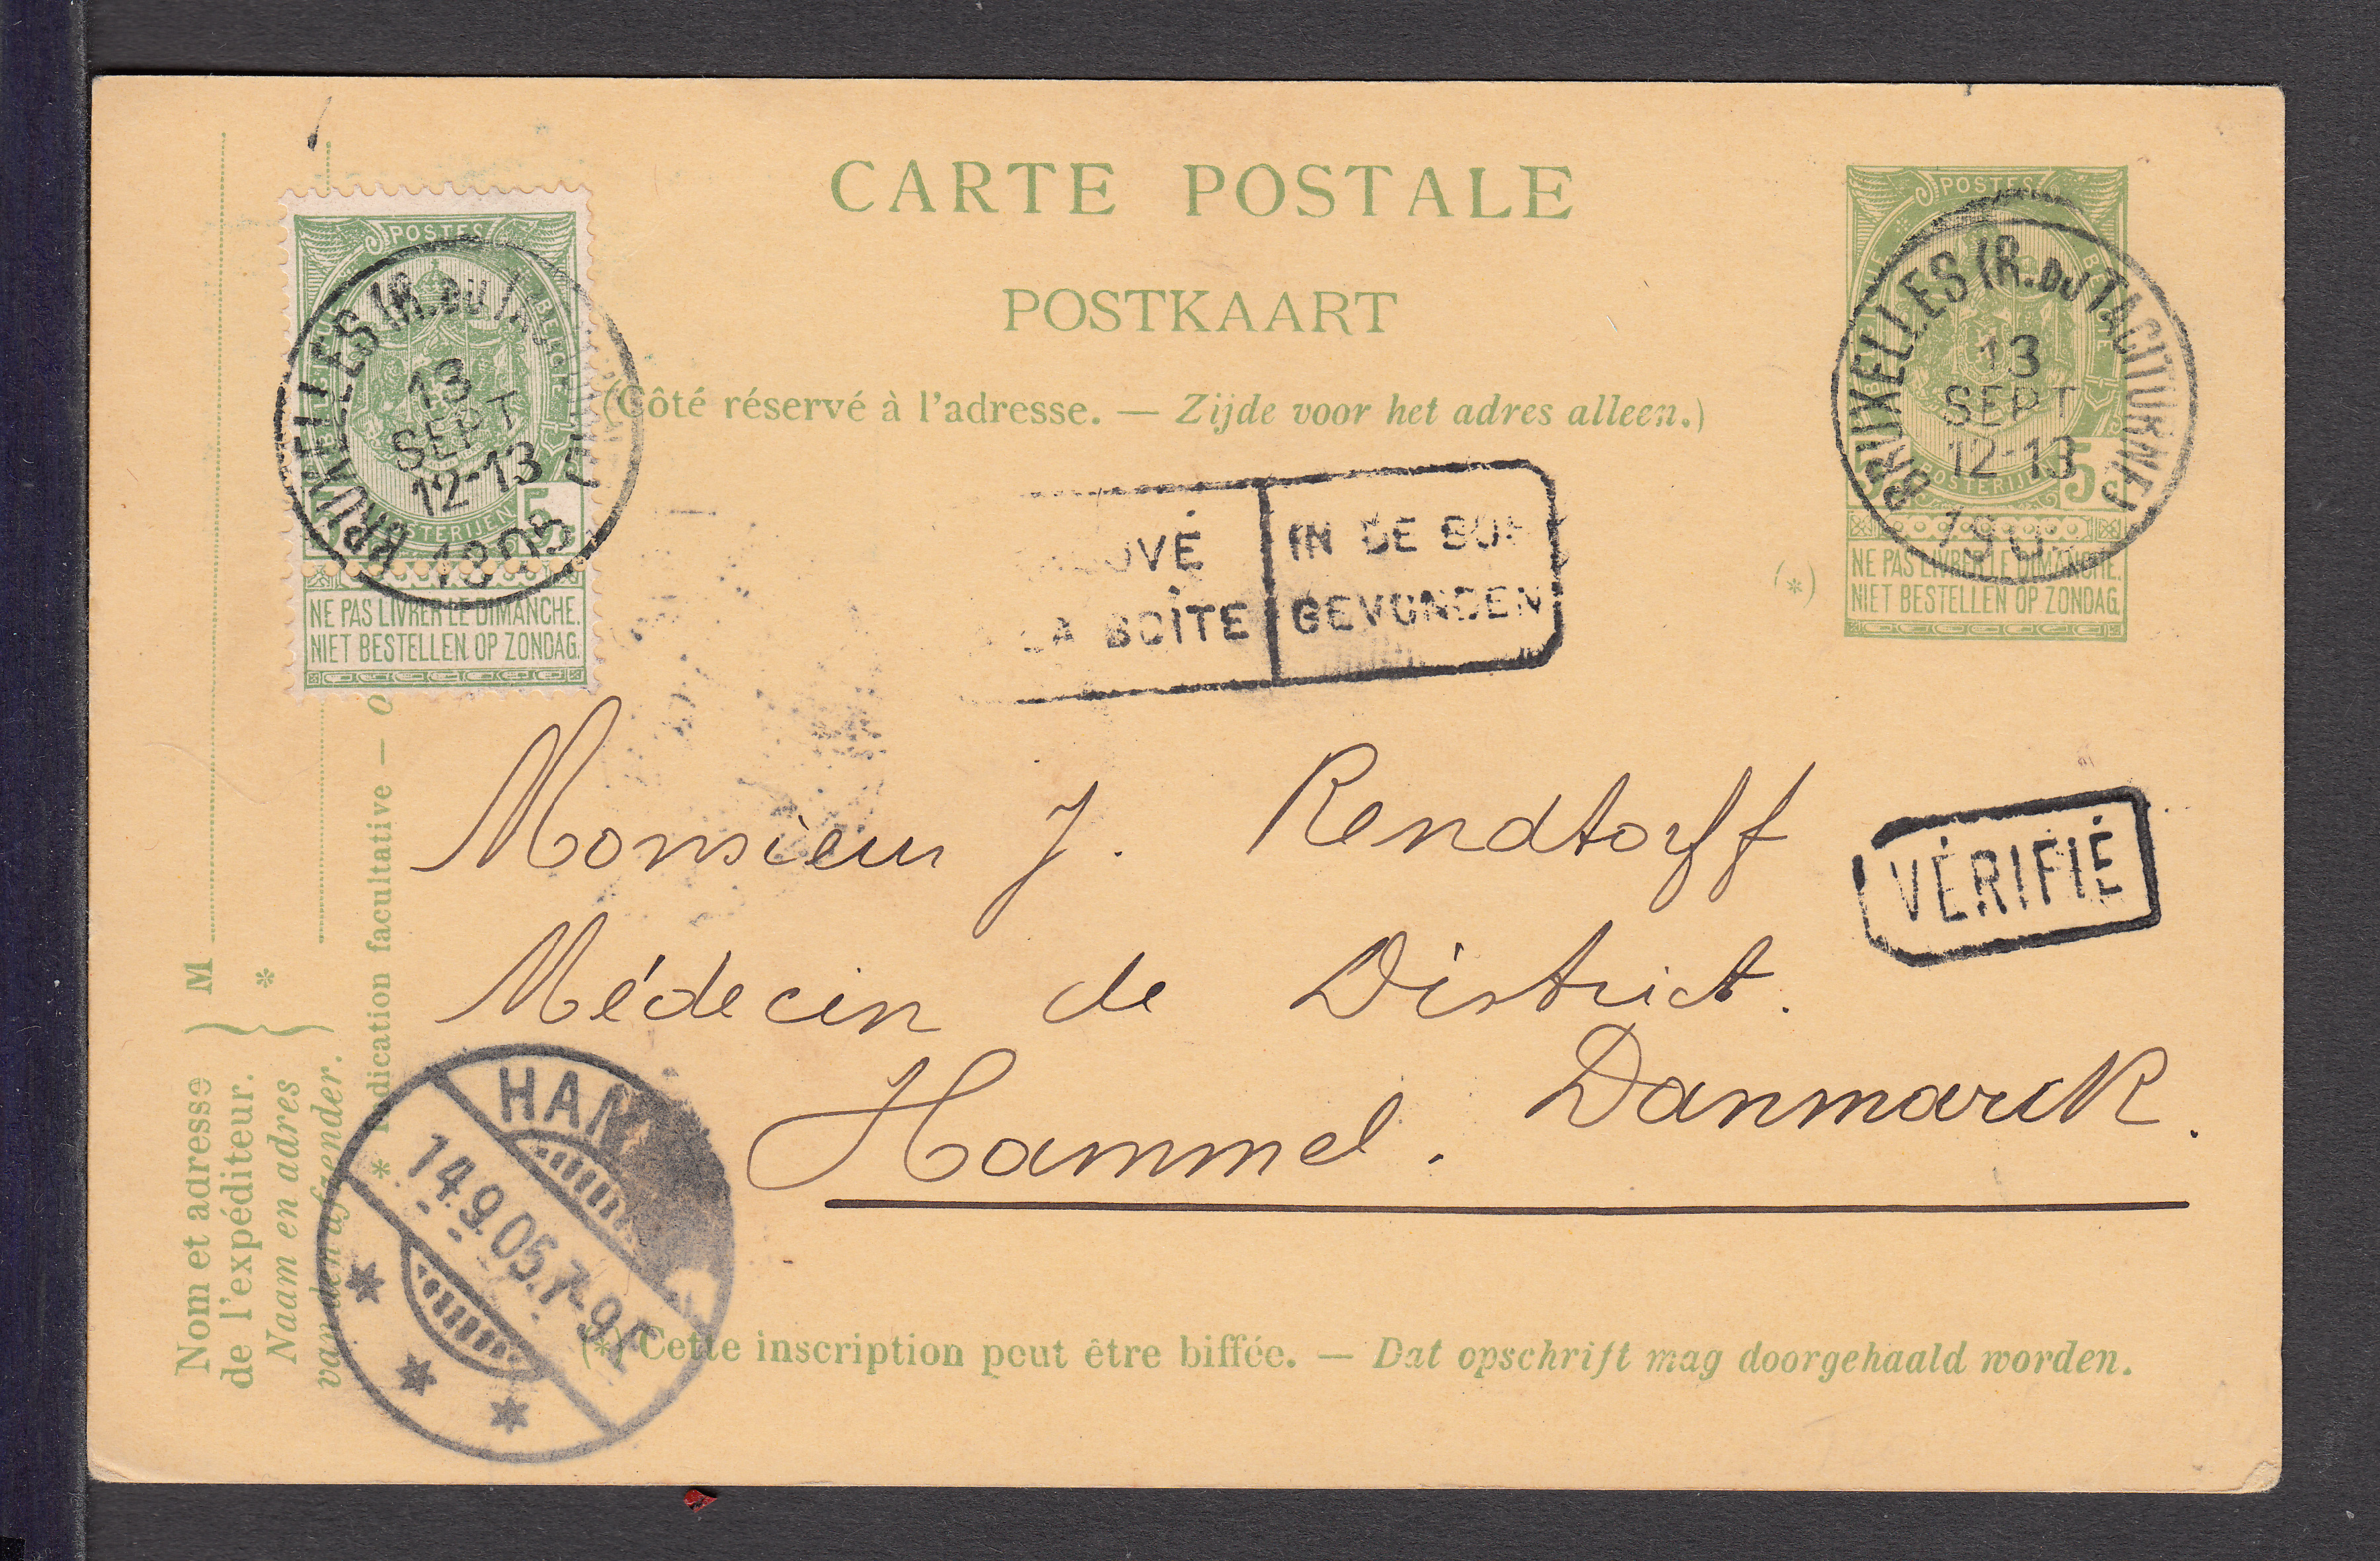 CARTE POSTALE
POSTKAART
(Côté réservé à l'adresse. — Zijde voor het adres alleen.)
POSTES
BELGIQUE
BELGIË
POSTERIJEN
5
NE PAS LIVRER LE DIMANCHE.
NIET BESTELLEN OP ZONDAG.
BRUXELLES (R. DU
13
SEPT
12-13
1905
POSTES
POSTERIJEN
5c
NE PAS LIVRER LE DIMANCHE.
NIET BESTELLEN OP ZONDAG.
BRUXELLES (R. DU TACITURNE)
13
SEPT
12-13
190
(*)
LA BOÎTE
IN DE
GEVONDEN
Monsieur J. Rendtorff
VÉRIFIÉ
Médecin de District.
Hammel. Danmarck.
HAM
14.9.05.7-9
Nom et adresse
de l'expéditeur.
Naam en adres
van den afzender.
M
*
* Indication facultative —
(*) Cette inscription peut être biffée. — Dat opschrift mag doorgehaald worden.